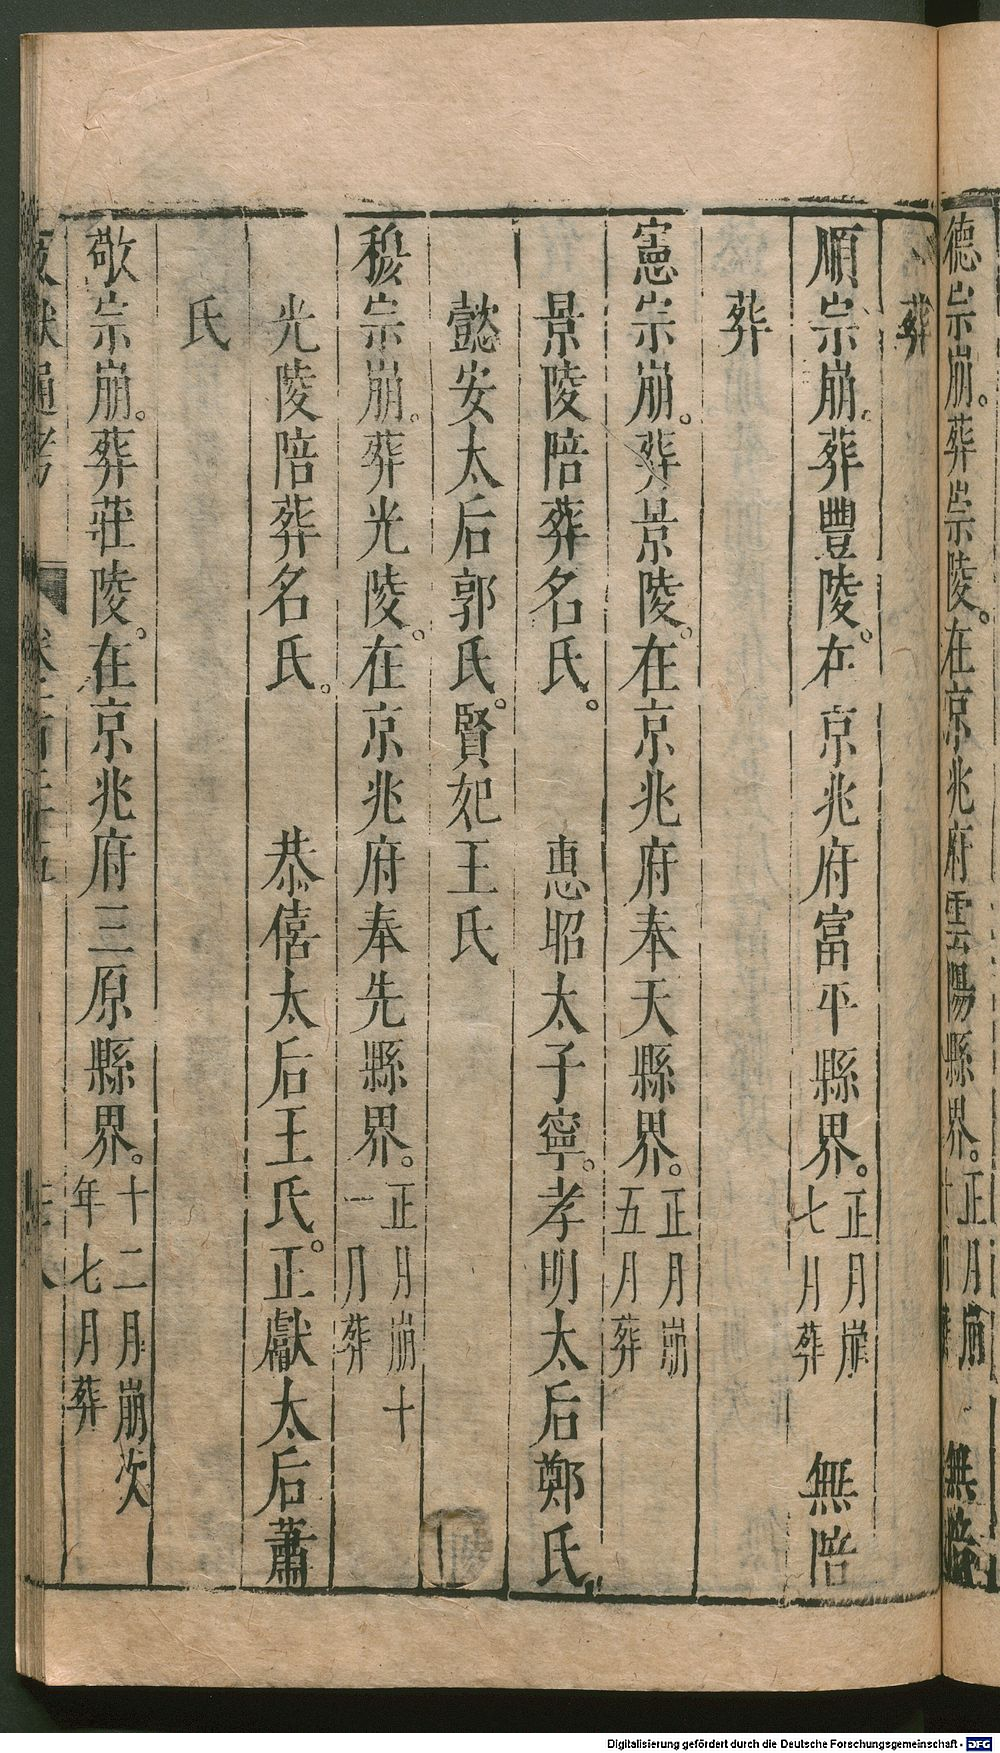 德宗崩。葬崇陵。在京兆府雲陽縣界。正月崩十月葬 無陪
葬
順宗崩。葬豐陵。在京兆府富平縣界。正月崩七月葬 無陪
葬
憲宗崩。葬景陵。在京兆府奉天縣界。正月崩五月葬
景陵陪葬名氏。 惠昭太子寧。孝明太后鄭氏。
懿安太后郭氏。賢妃王氏
穆宗崩。葬光陵。在京兆府奉先縣界。正月崩十一月葬
光陵陪葬名氏。 恭僖太后王氏。正獻太后蕭
氏
敬宗崩。葬莊陵。在京兆府三原縣界。十二月崩次年七月葬
Digitalisierung gefördert durch die Deutsche Forschungsgemeinschaft - DFG